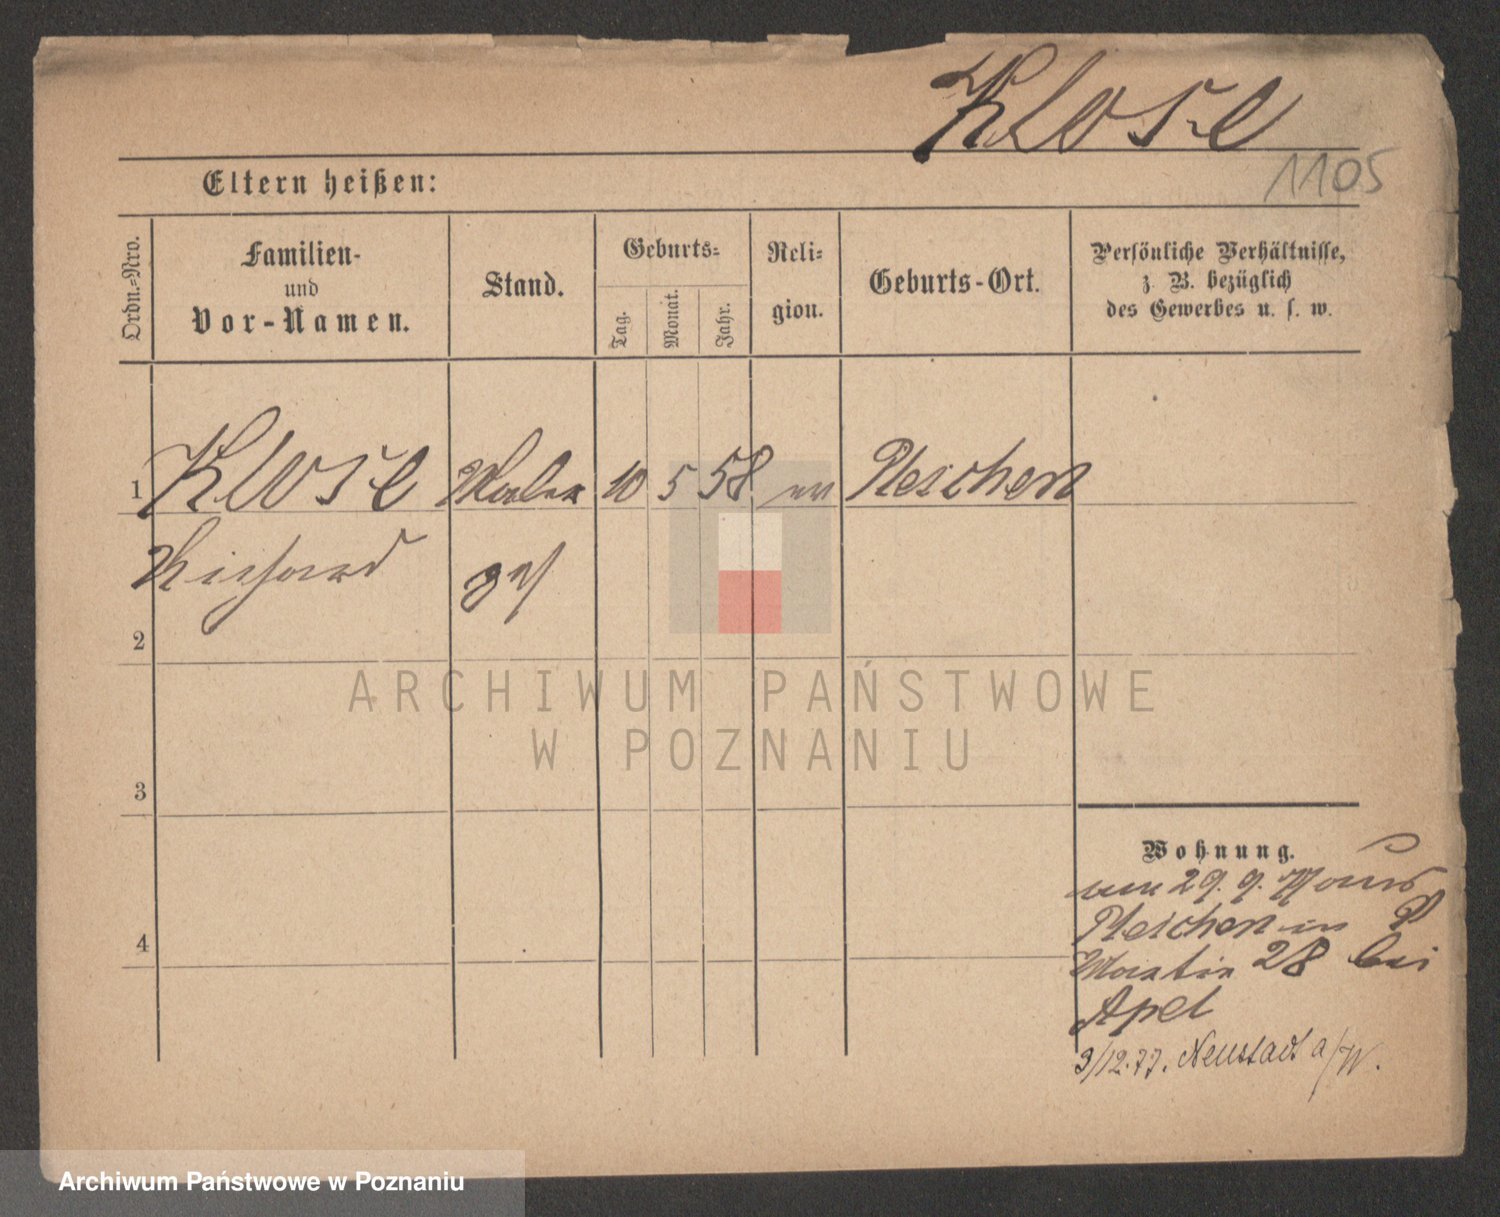 Klose
1105
Eltern heißen:
Ordn.-Nro.
Familien-
und
Vor-Namen.
Stand.
Geburts-
Tag.
Monat.
Jahr.
Reli-
gion.
Geburts-Ort.
Persönliche Verhältnisse,
z. B. bezüglich
des Gewerbes u. s. w.
1 Klose Maler 10 5 58 ev Pleschen
Richard
2
3
4
Wohnung.
am 29. 9. 77 aus
Pleschen in
Martin 28 bei
Apel
3/12.77. Neustadt a/W.
ARCHIWUM PAŃSTWOWE
W POZNANIU
Archiwum Państwowe w Poznaniu